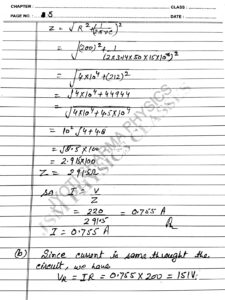 CHAPTER :
CLASS :
PAGE NO. : 5
DATE :
Z = √R² + (1/2πνc)²
= √(200)² + (1/(2×3.14×50×15×10⁻⁶))²
= √4×10⁴ + (212)²
= √4×10⁴ + 44944
= √4×10⁴ + 4.5×10⁴
= 10² √4+4.8
= √8.5 × 100
= 2.915×100
Z = 291.5Ω
so, I = V/Z
= 220/291.5 = 0.755 A
I = 0.755 A
(b) Since current is same throught the
circuit, we have
VR = IR = 0.755 × 200 = 151V.
PHYSICS
ISM PHYSICS CLASSES